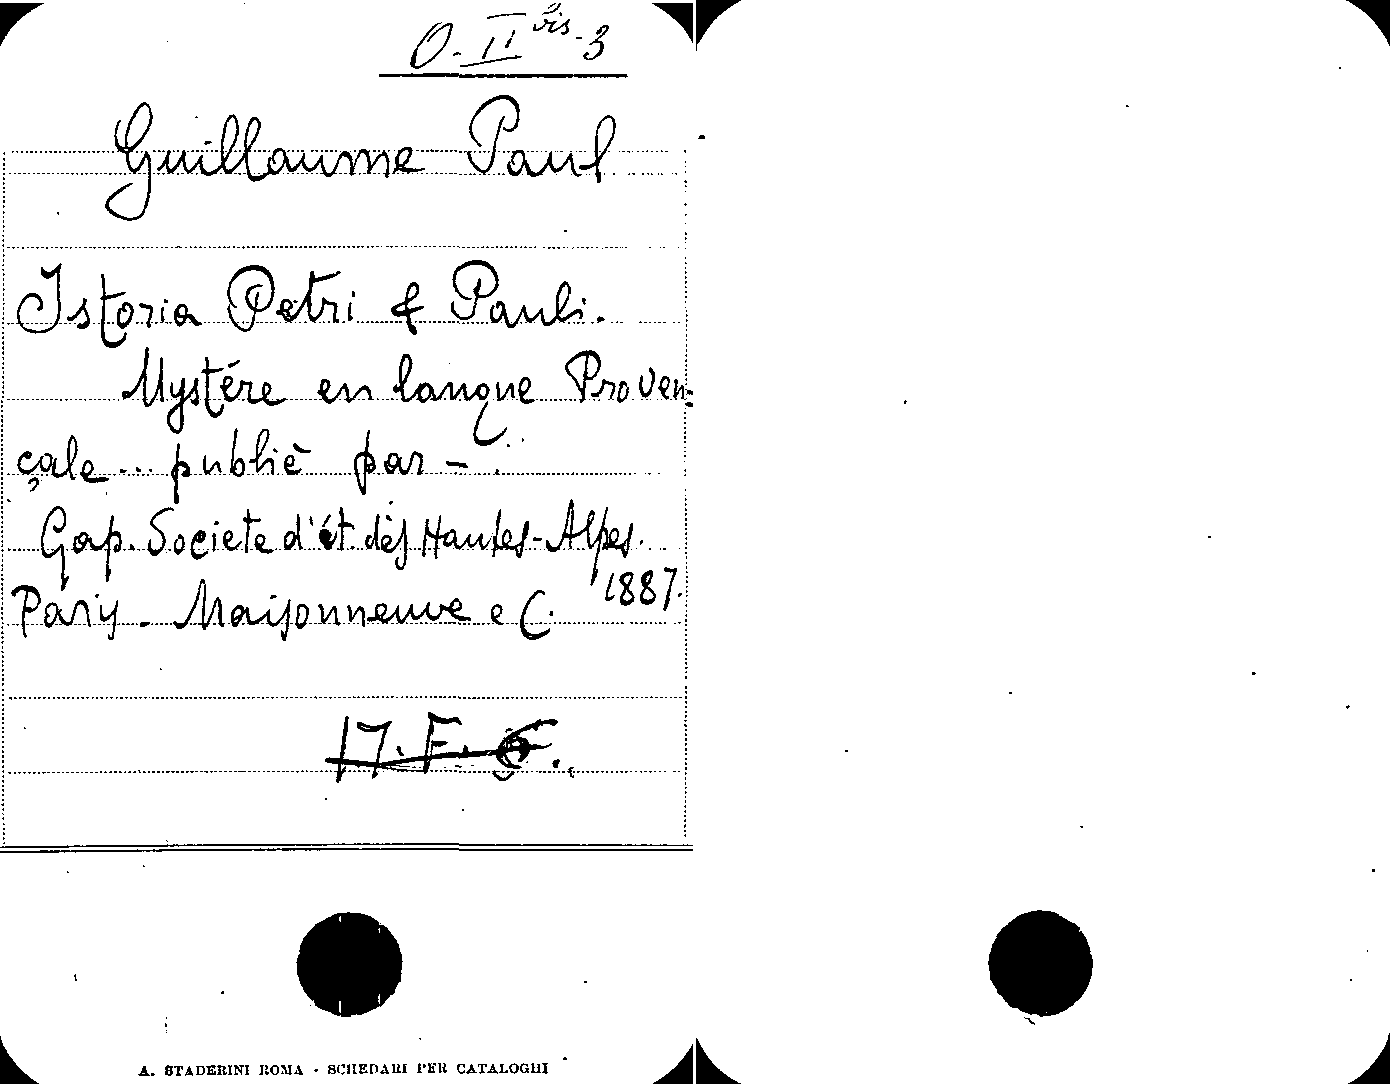 O-II bis-3
Guillaume Paul
Istoria Petri & Pauli.
Mystére en langue Proven-
çale ... publiè par -
Gap. Societe d'ét. des Hautes-Alpes.
1887.
Paris - Maisonneuve e C.
17. F.
A. STADERINI ROMA - SCHEDARI PER CATALOGHI